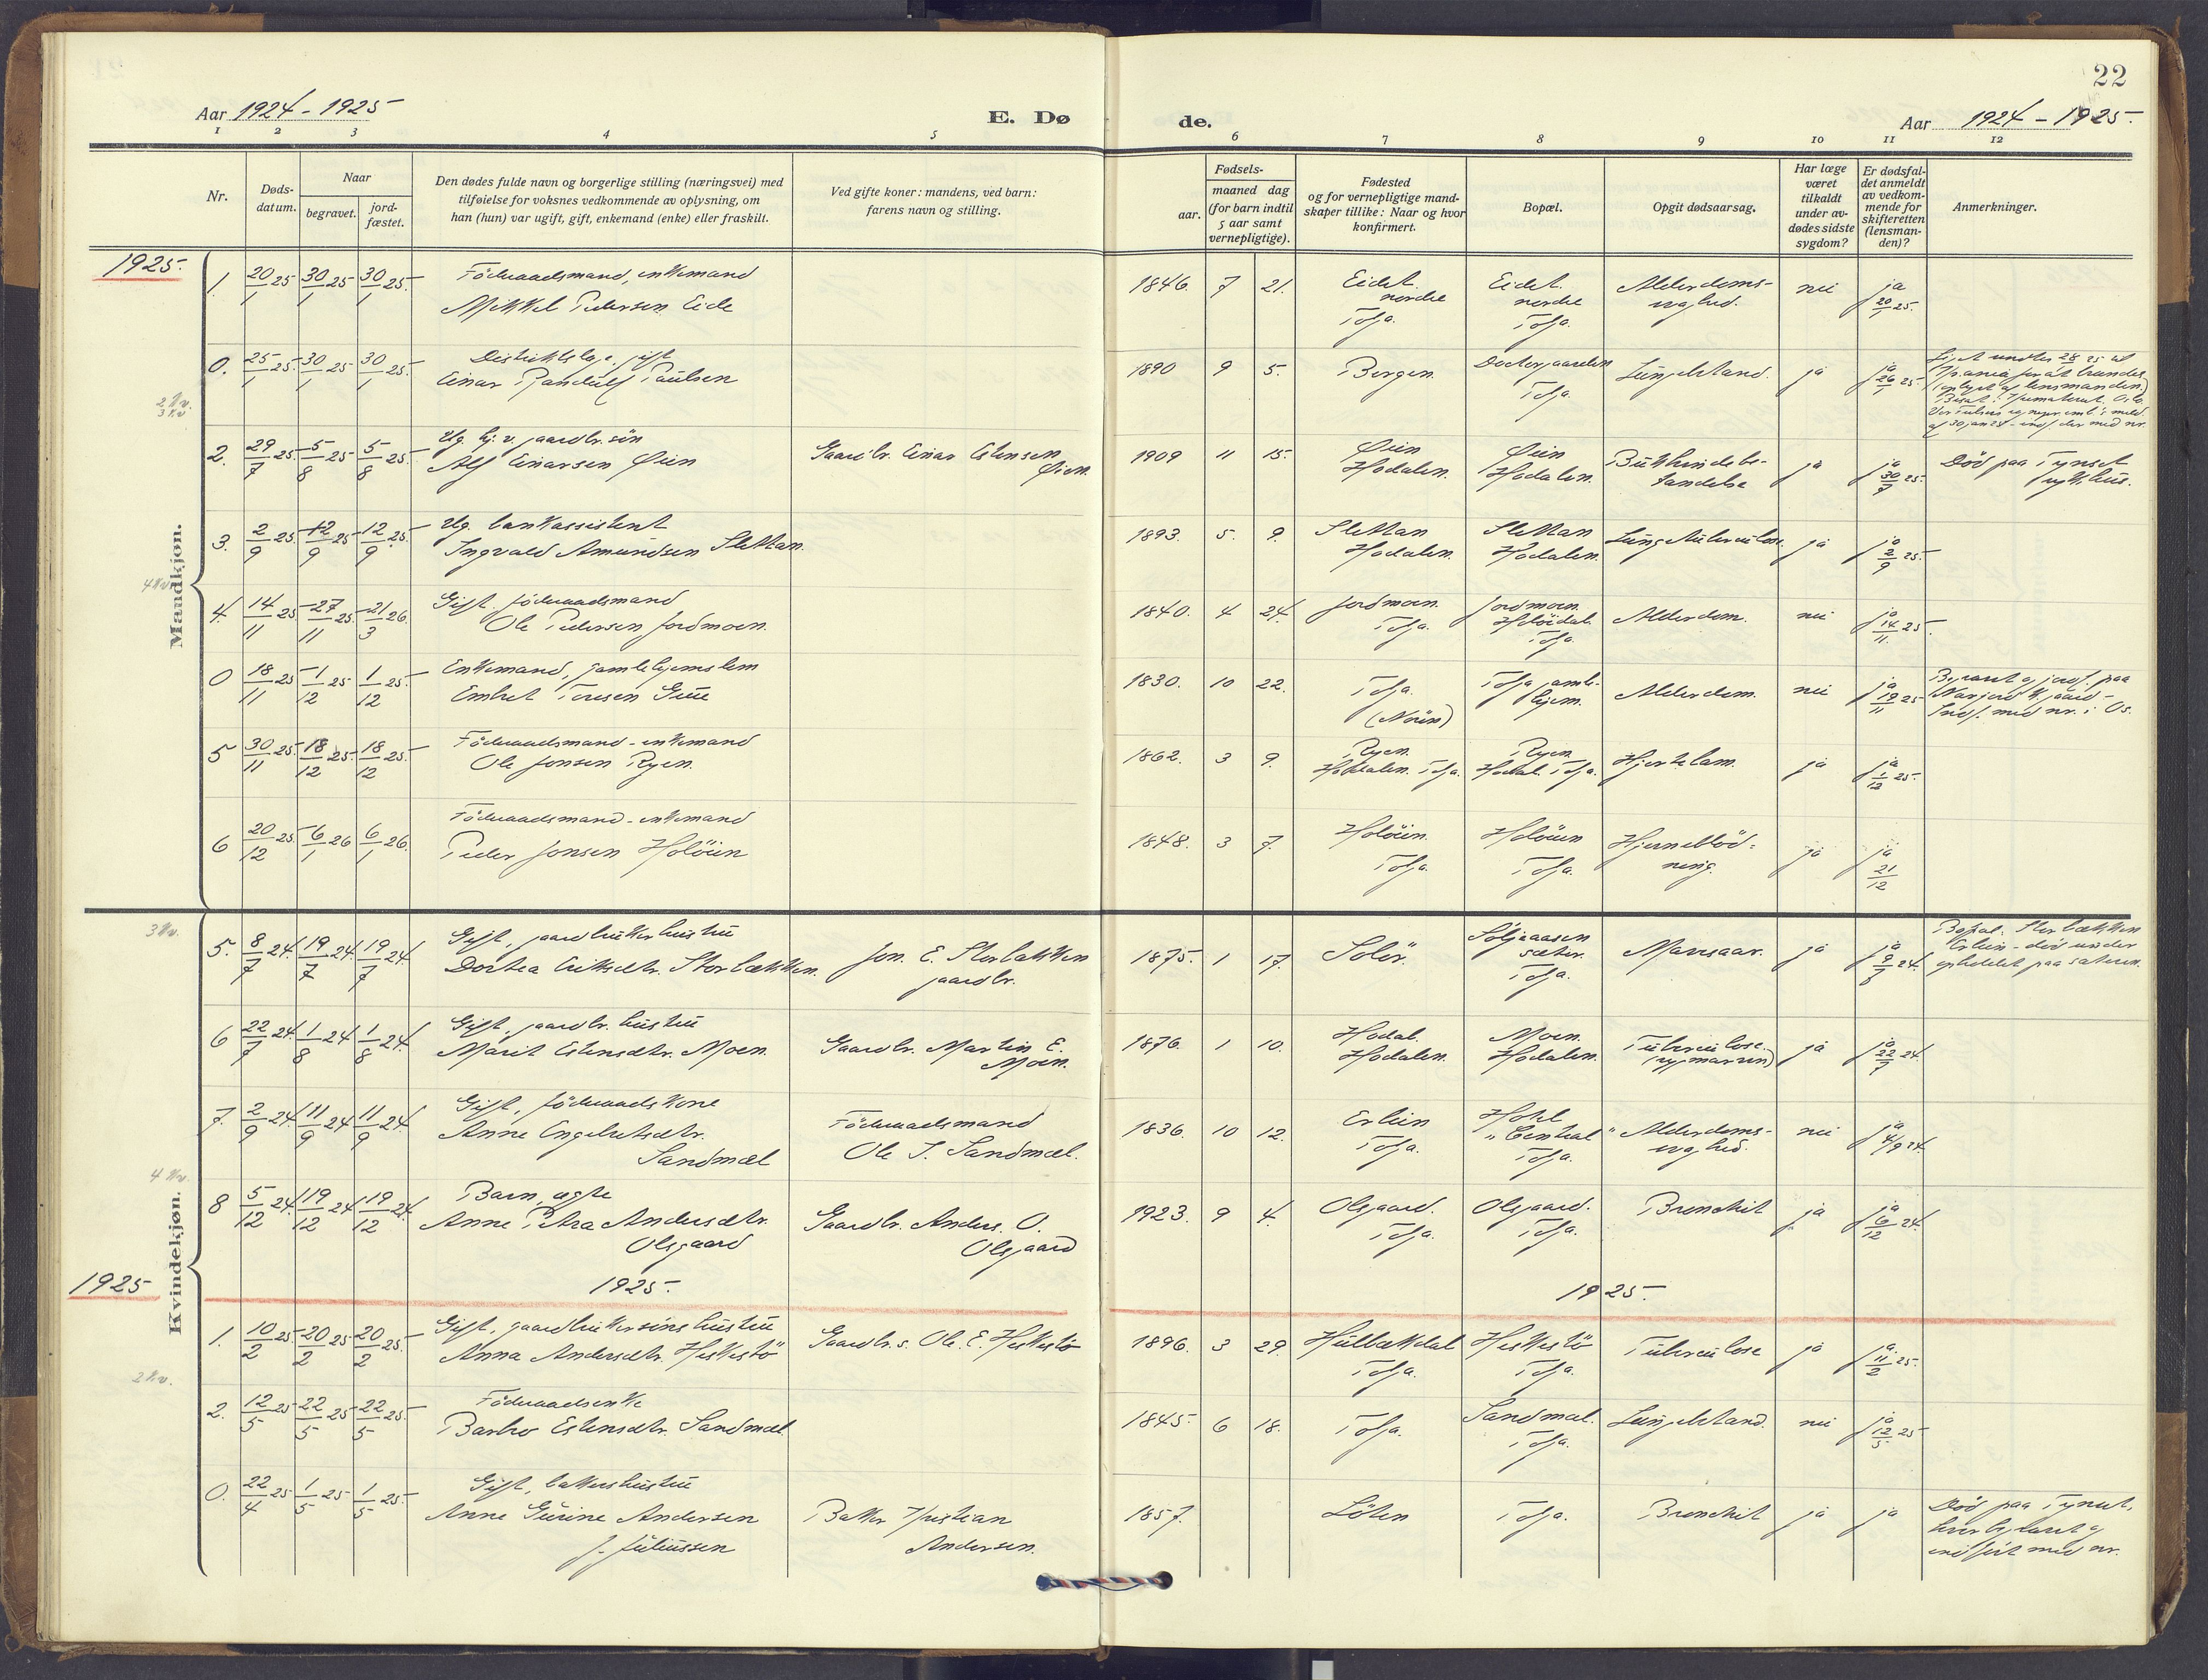 22
Aar 1924 - 1925
E. Dø
de.
Aar 1924 - 1925.
1 2 3 4 5 6 7 8 9 10 11 12
Nr.
Døds-
datum.
Naar
begravet.
jord-
fæstet.
Den dødes fulde navn og borgerlige stilling (næringsvei) med
tilføielse for voksnes vedkommende av oplysning, om
han (hun) var ugift, gift, enkemand (enke) eller fraskilt.
Ved gifte koner: mandens, ved barn:
farens navn og stilling.
Fødsels-
aar.
maaned dag
(for barn indtil
5 aar samt
vernepligtige).
Fødested
og for vernepligtige mand-
skaper tillike: Naar og hvor
konfirmert.
Bopæl.
Opgit dødsaarsag.
Har læge
været
tilkaldt
under av-
dødes sidste
sygdom?
Er dødsfal-
det anmeldt
av vedkom-
mende for
skifteretten
(lensman-
den)?
Anmerkninger.
Mandkjøn.
1925.
1. 20/1 25 30/1 25 30/1 25. Föderaadsmand, enkemand
Mikkel Pedersen Eide
1846. 7 21. Eidet nordre Tolga. Eidet nordre Tolga. Alderdoms-
svaghed. nei ja 20/1 25.
0. 25/1 25 30/1 25 30/1 25. Distriktslæge, gift
Einar Randulf Paulsen
1890 9 5. Bergen. Doctorgaarden Tolga. Lungebetænd. ja ja 26/1 25.
2 Kv.
3 Kv.
2. 29/7 25. 5/8 25 5/8 25. Ug. hj. v. gaardbr. sön
Alf Einarsen Øien
Gaardbr. Einar Estensen
Øien.
1909 11 15. Øien Hodalen. Øien Hodalen. Bukhindebe-
tændelse ja ja 30/7 25. Död paa Tynset
sykehus.
3. 2/9 25. 12/9 25 12/9 25. Ug. bankassistent
Ingvald Amundsen Slettan.
1893. 5. 9. Slettan Hodalen. Slettan Hodalen. Lungetuberculose. ja ja 2/9 25.
4 Kv.
4. 14/11 25 27/11 25. 21/3 26. Gift, föderaadsmand
Ole Pedersen Jordmoen.
1840. 4 24. Jordmoen. Tolga. Jordmoen. Holöidal. Tolga. Alderdom. nei ja 14/11. 25.
0 18/11 25 1/12 25 1/12 25. Enkemand, gamlehjemslem
Embret Toresen Grue
1830. 10 22. Tolga. (Noren) Tolga gamle-
hjem. Alderdom. nei ja 19/11 25 Begravet og jordf. paa
Narjord kgaard -
Indf. med nr. i Os.
5 30/11 25. 18/12 25. 18/12 25. Föderaadsmand - enkemand
Ole Jonsen Ryen.
1862. 3 9. Ryen. Hodalen. Tolga. Ryen. Hodal. Tolga. Hjertelam. ja ja 1/12 25.
6 20/12 25. 6/1 26 6/1 26. Föderaadsmand - enkemand
Peder Jonsen Holöien
1848. 3 7. Holöien. Tolga. Holöien Tolga. Hjerneblöd-
ning. ja ja 21/12
Kvindekjøn.
3 Kv.
5. 8/7 24. 19/7 24. 19/7 24. Gift, gaardbrukerhustru
Dortea Eriksdtr. Storbækken.
Jon. E. Storbækken
gaardbr.
1875. 1 17. Solör. Søljeaasen sæter. Tolga. Mavesaar. ja ja 9/7 24. Bopæl. Storbækken
Erlien - död under
opholdet paa sæteren.
6 22/7 24. 1/8 24 1/8 24. Gift, gaardbr. hustru
Marit Estensdtr. Moen.
Gaardbr. Martin E.
Moen.
1876. 1 10. Hodal. Hodalen. Moen. Hodalen. Tuberculose.
(rygmarven) ja ja 22/7 24.
7. 2/9 24. 11/9 24 11/9 24. Gift, föderaadskone
Anne Engebretsdtr.
Sandmæl
Föderaadsmand
Ole J. Sandmæl.
1836. 10 12. Erlien Tolga. Hotel "Central" Tolga. Alderdoms-
svaghed. nei ja 4/9 24.
4 Kv.
8 5/12 24. 19/12 24 19/12 24. Barn, ægte
Anne Petra Andersdtr.
Olsgaard
Gaardbr. Anders. O.
Olsgaard
1923. 9 4. Olsgaard. Tolga. Olsgaard. Tolga. Bronchit ja ja 6/12 24.
1925 1925. 1925.
1. 10/2 25. 20/2 25 20/2 25. Gift, gaardbrukersöns hustru
Anna Andersdtr. Heskestö
Gaardbr. s. Ole. E. Heskestö
1896. 3 29. Hulbækdal Tolga. Heskestö Tolga. Tuberculose ja ja. 11/2 25.
2 Kv.
2. 12/5 25 22/5 25 22/5 25. Föderaadsenke
Barbro Estensdtr. Sandmæl
1845. 6 18. Tolga. Sandmæl. Tolga. Lungebetænd. nei ja 12/5 25
0. 22/4 25 1/5 25 1/5 25. Gift, bakerhustru
Anne Gurine Andersen
f. Juliussen
Baker Kristian
Andersen.
1857. Löten Tolga. Bronchit ja ja Död paa Tynset,
hvor begravet og
indført med nr.